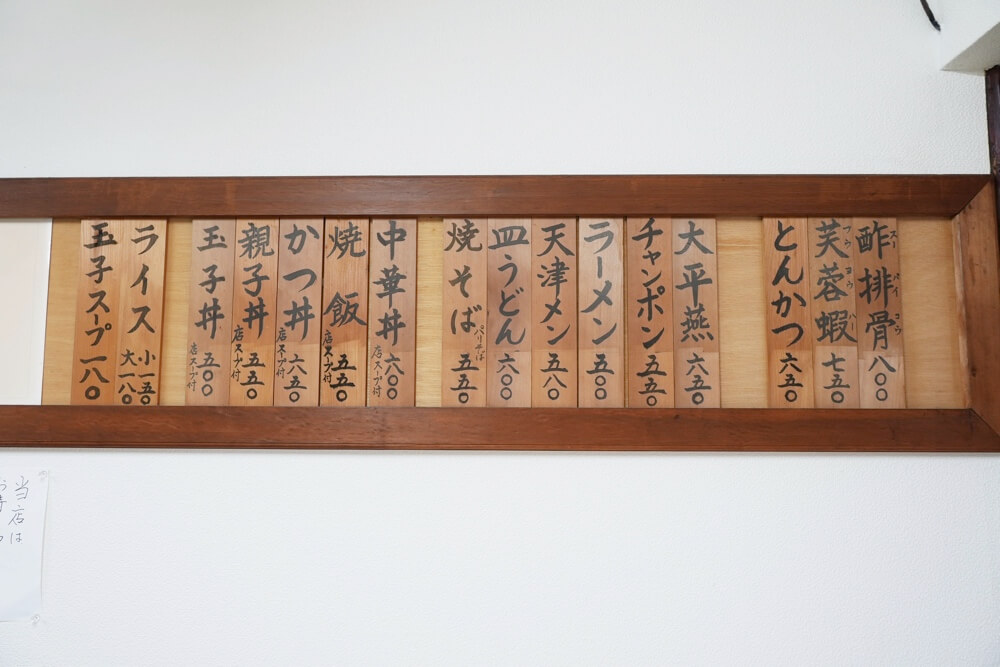 酢排骨 八〇〇
スー パイ コウ
芙蓉蝦 七五〇
フウ ヨウ ハー
とんかつ 六五〇
大平燕 六五〇
チャンポン 五五〇
ラーメン 五〇〇
天津メン 五八〇
皿うどん 六〇〇
焼そば 五五〇
パリそば
中華丼 六〇〇
店スープ付
焼飯 五五〇
店スープ付
かつ丼 六五〇
店スープ付
親子丼 五五〇
店スープ付
玉子丼 五〇〇
店スープ付
ライス 小一五〇
大一八〇
玉子スープ 一八〇
当店は